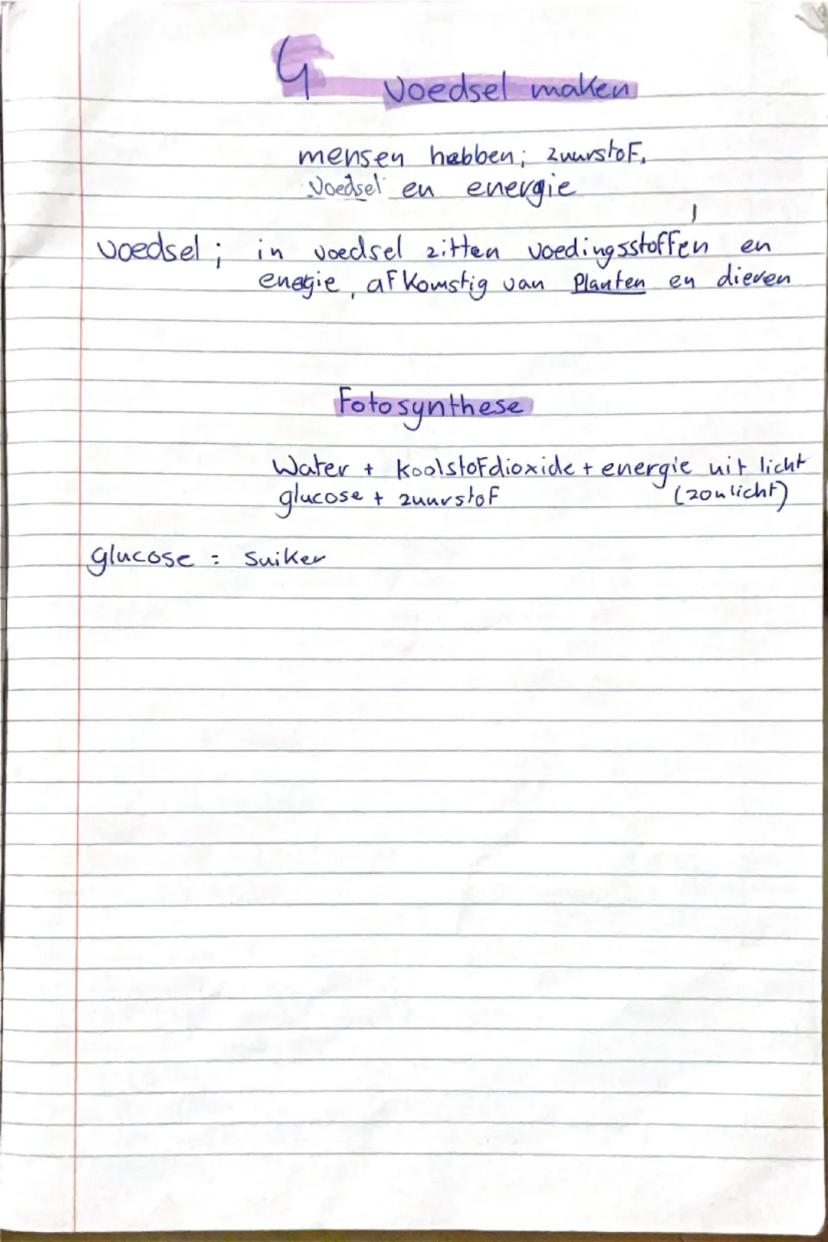 4 Voedsel maken
mensen hebben; zuurstof,
voedsel en energie
voedsel; in voedsel zitten voedingsstoffen en
energie, afkomstig van Planten en dieren
Fotosynthese
Water + koolstofdioxide + energie uit licht
glucose + zuurstof (zonlicht)
glucose = suiker